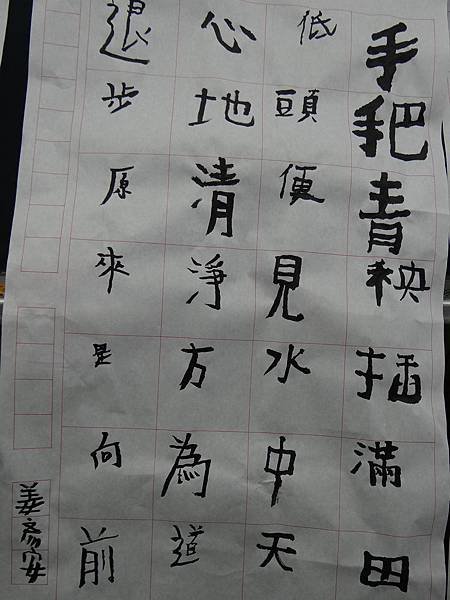 手把青秧插滿田
低頭便見水中天
心地清淨方為道
退步原來是向前
姜彥安